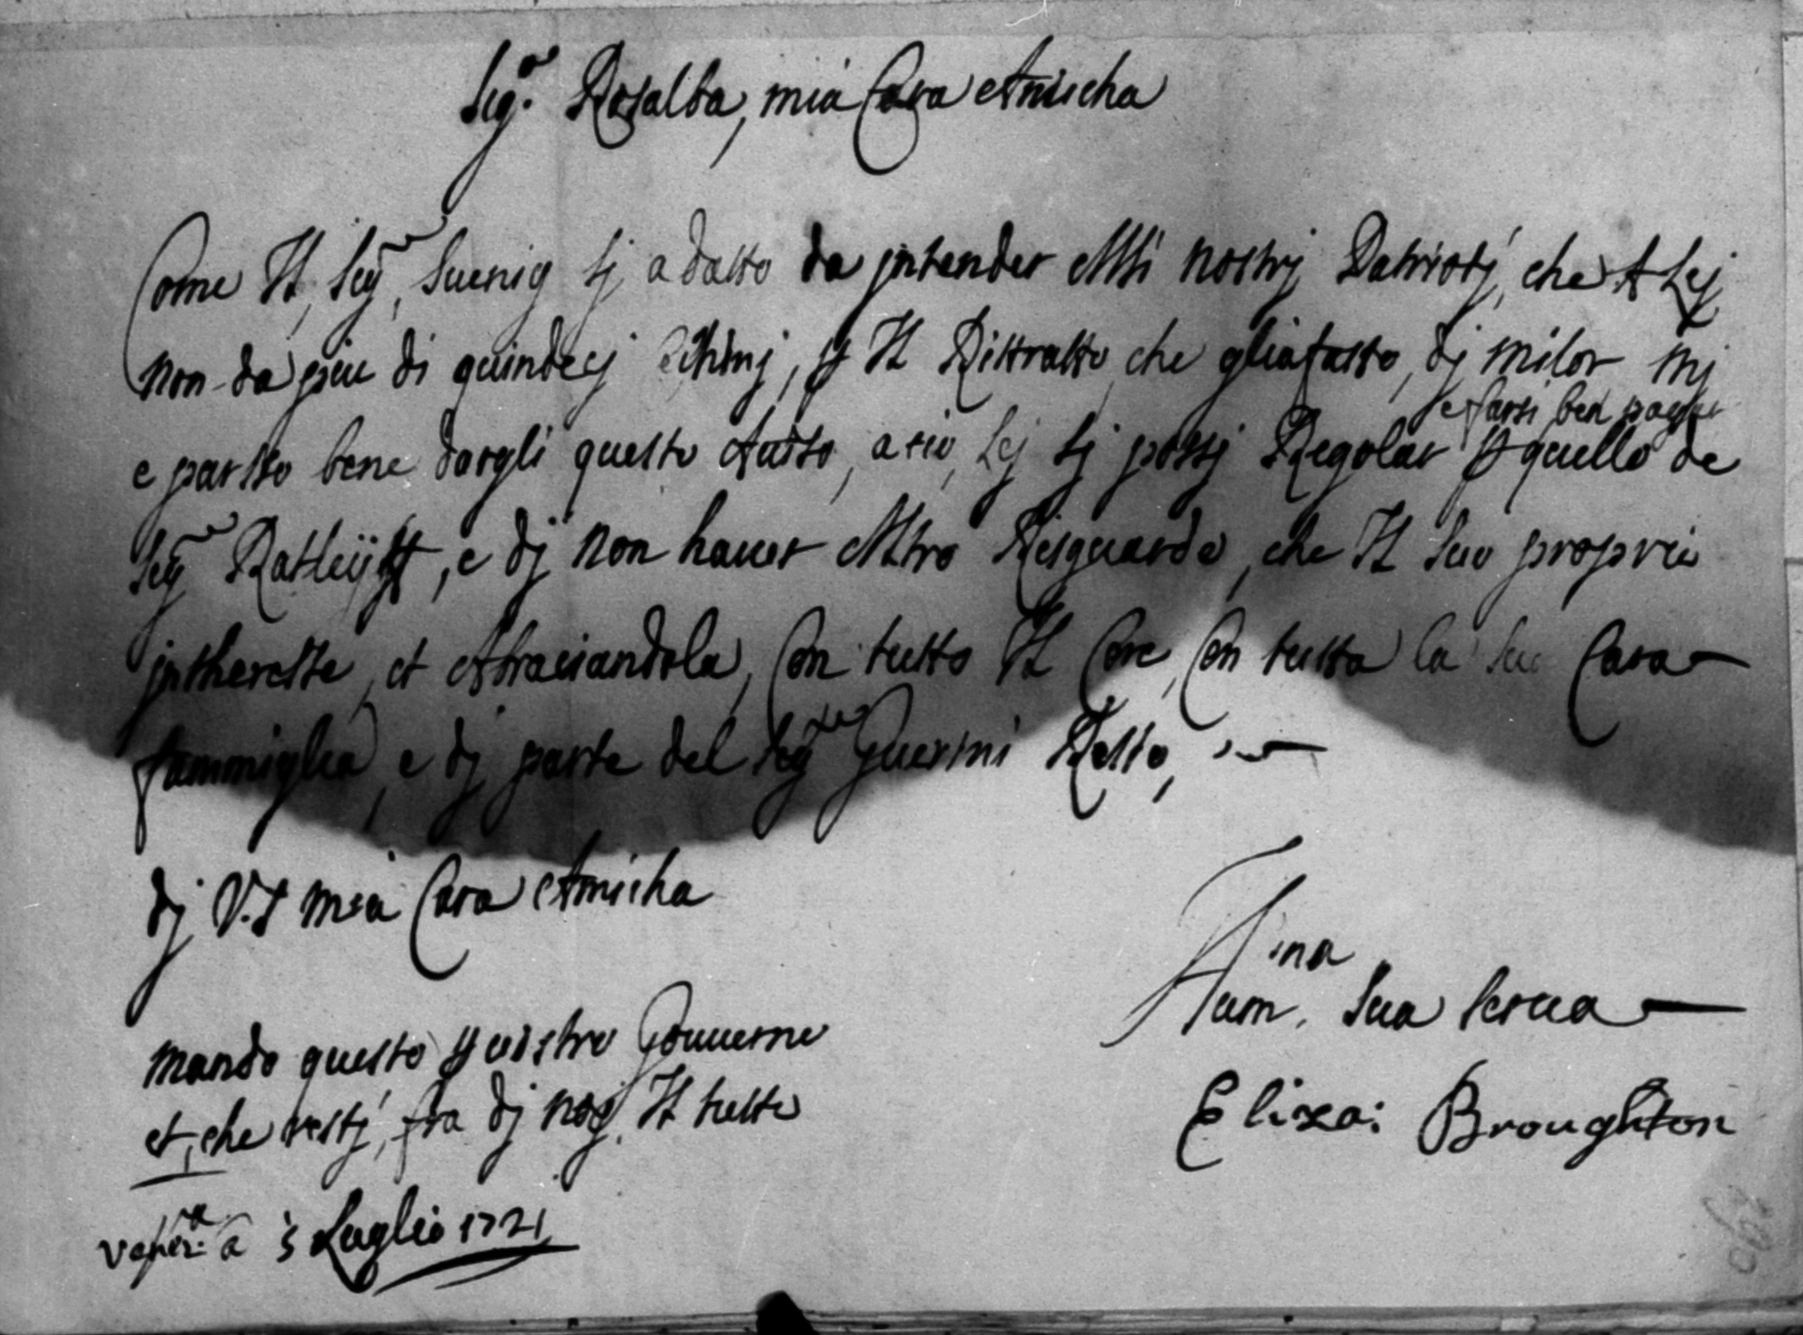 Sig.ra Rosalba, mia Cara Amicha
Come Il, Sig.r, Suenig sj a datto da jntender Alli nostrj Patriotj, che A Lej
non da piu di quindecj Cechinj, p Il Rittratto che gliafatto, dj milor mj
e farsi ben pagar
e parsso bene dargli questo Auiso, a cio, Lej sj possj Regolar p quello de
Sig.r, e dj non hauer Altro Risguardo, che Il suo proprio
jntheresse, et Abraciandola, Con tutto Il Core, Con tutta la sua Cara
fammiglia, e dj parte del Sig.r Guerini Resto,
dj V.S mia Cara Amicha
Hum.ina Sua Serua
Eliza: Broughton
mando questo p uostro Gouuerno
et, che restj, fra dj noj, Il tutto
a 3 Luglio 1721